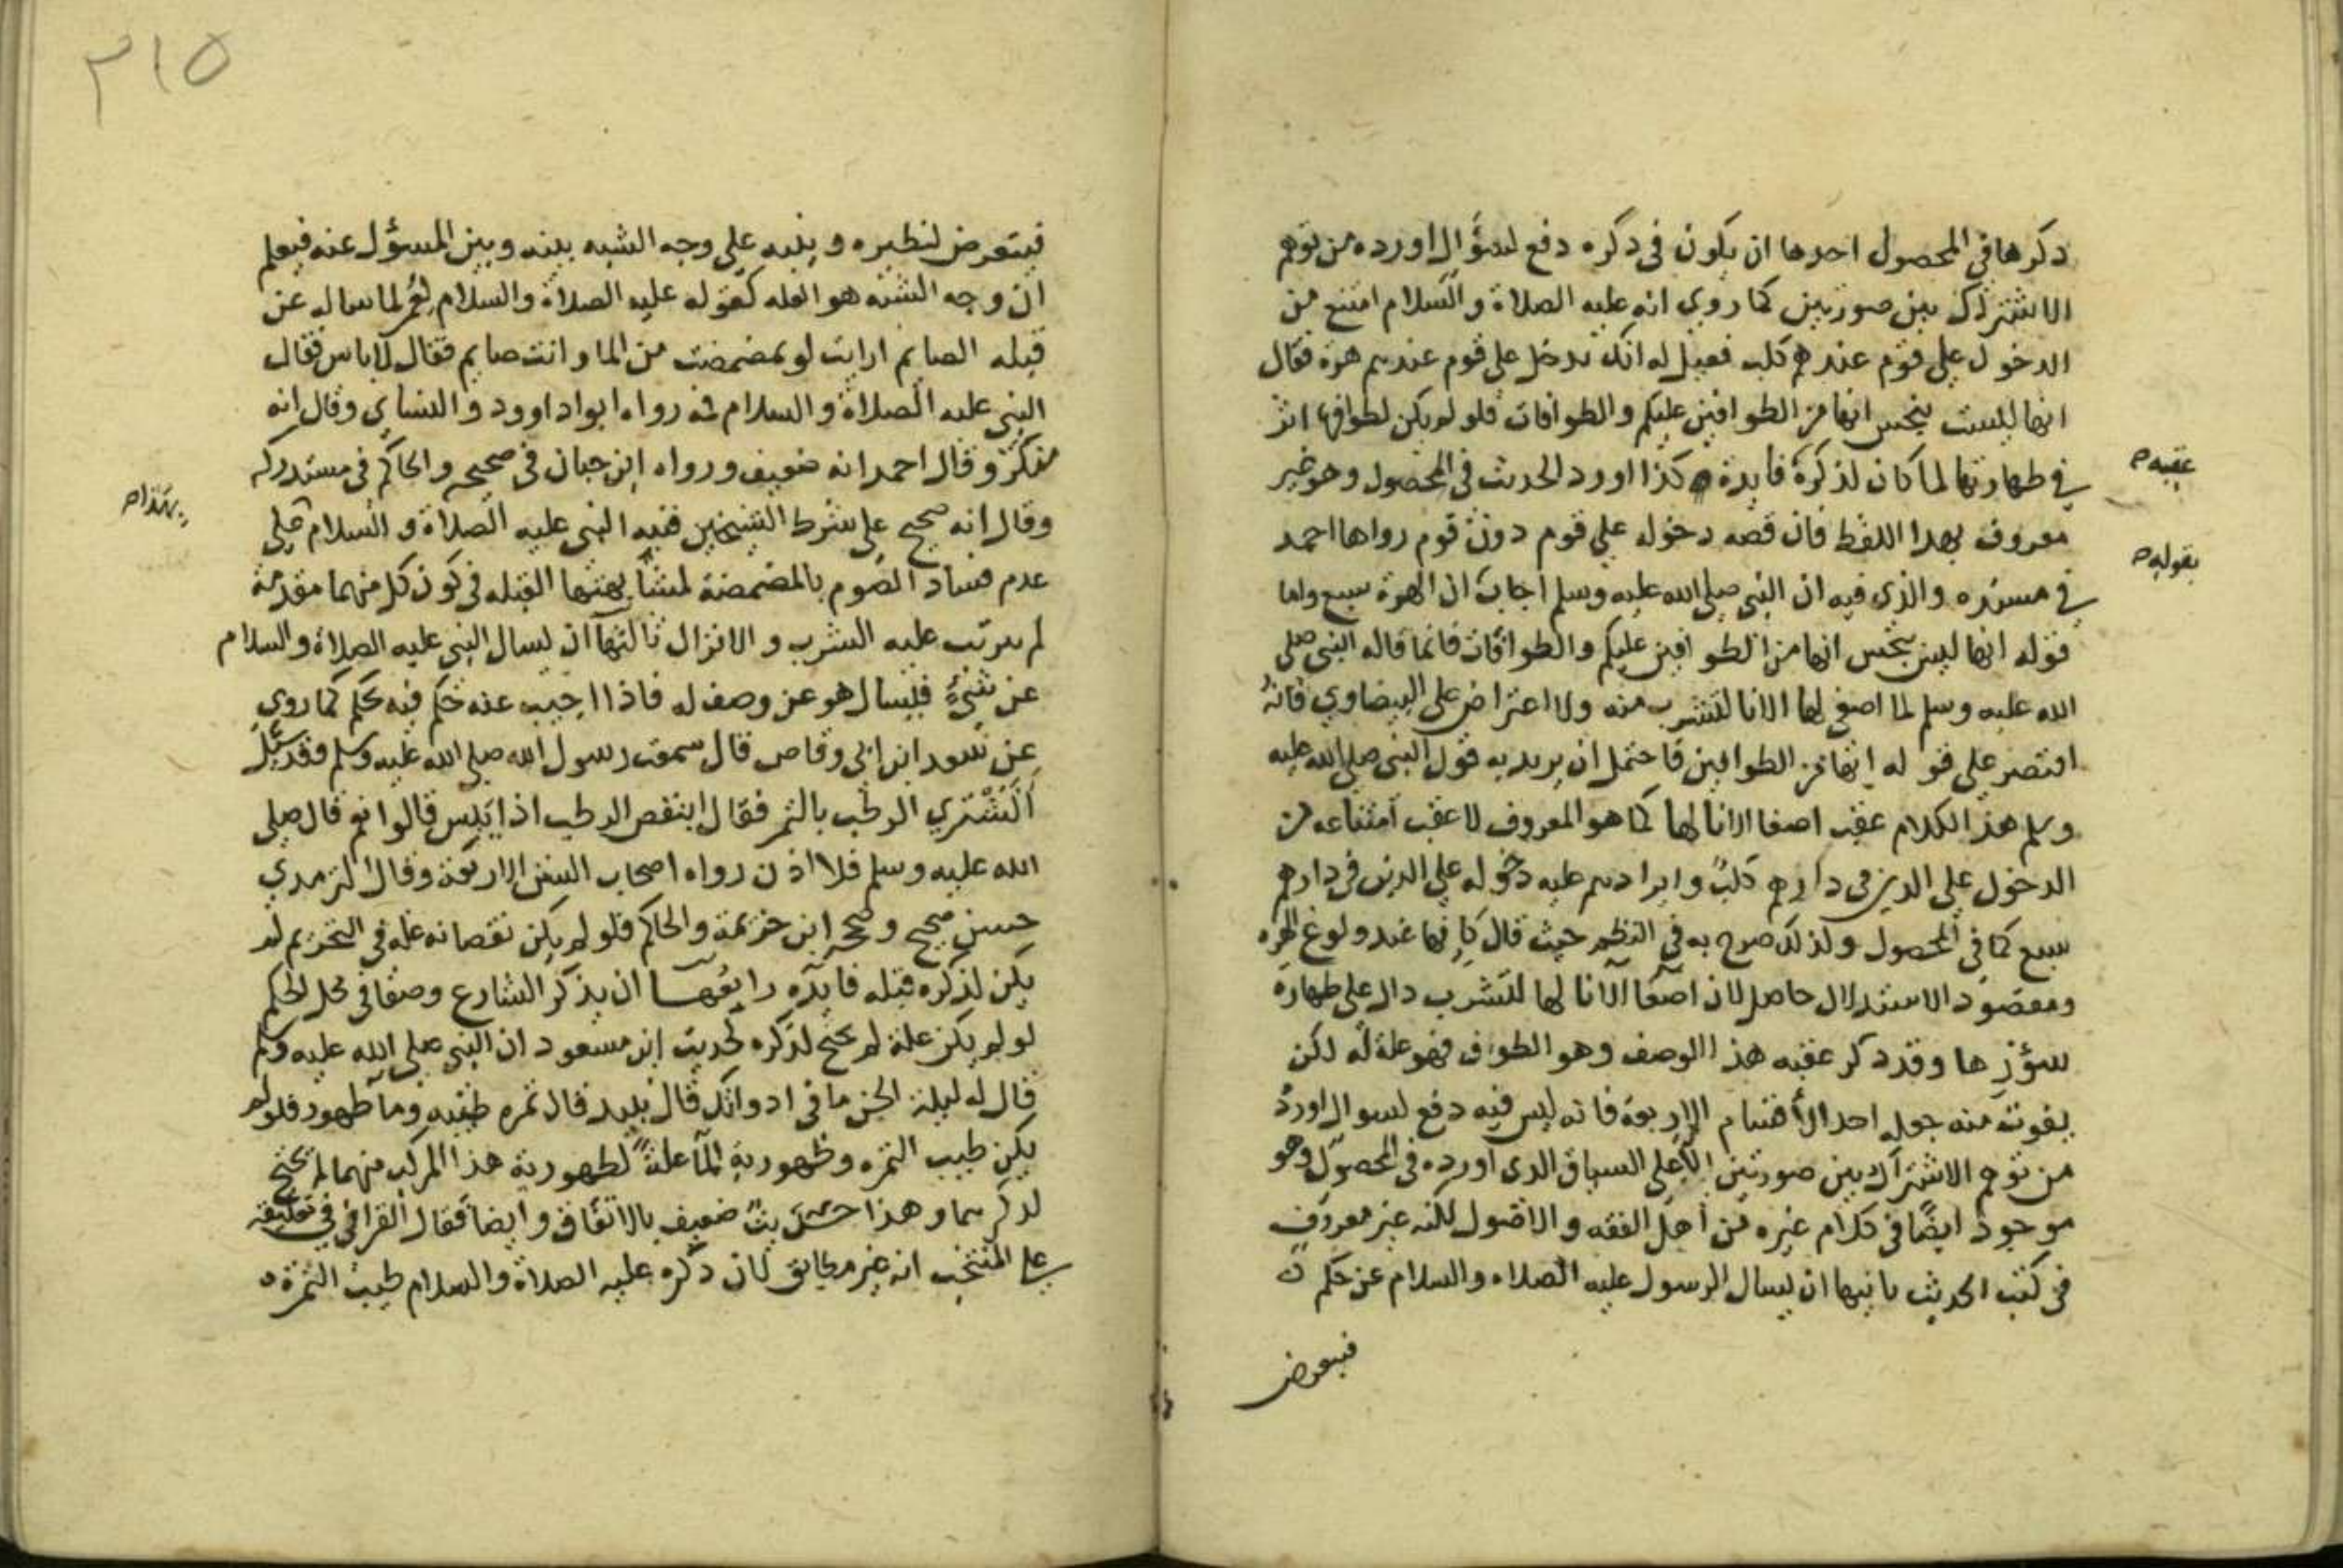 ذكرها في المحصول احدها ان يكون في ذكره دفع لسؤال اورده من توهم
الاشتراك بين صورتين كما روي انه عليه الصلاة والسلام امتنع من
الدخول علي قوم عندهم كلب فقيل له انك تدخل علي قوم عندهم هرة فقال
انها ليست بنجس انها من الطوافين عليكم والطوافات فلو لم يكن لطوافها اثر
في طهارتها لما كان لذكره فايدة كذا اورد الحديث في المحصول وهو غير
عقيبه
معروف بهذا اللفظ فان قصه دخوله علي قوم دون قوم رواها احمد
بقوله
في مسنده والذي فيه ان النبي صلي الله عليه وسلم اجاب ان الهرة سبع واما
قوله انها ليس بنجس انها من الطوافين عليكم والطوافات فانما قاله النبي صلي
الله عليه وسلم لما اصغي لها الانا لتشرب منه ولا اعتراض علي البيضاوي فانه
اقتصر علي قوله انها من الطوافين فاحتمل ان يريد به قول النبي صلي الله عليه
وسلم هذا الكلام عقب اصغا الانا لها كما هو المعروف لا عقب امتناعه من
الدخول علي الذين في دارهم كلب وايرادهم عليه دخوله علي الذين في دارهم
سبع كما في المحصول ولذلك صرح به في النظم حيث قال كانها عند ولوغ الهره
ومقصود الاستدلال حاصل لان اصغا الانا لها لتشرب دال علي طهارة
سؤرها وقد ذكر عقبه هذا الوصف وهو الطواف فهو علة له لكن
يفوت منه جعله احد الأقسام الاربعة فانه ليس فيه دفع لسوال اورد
من توهم الاشتراك بين صورتين الا علي السياق الذي اورده في المحصول وهو
موجود ايضًا في كلام غيره من أهل الفقه والاصول لكنه غير معروف
في كتب الحديث ثانيها ان يسال الرسول عليه الصلاه والسلام عن حكم
فيتعرض
٣١٥
فيتعرض لنظيره وينبه علي وجه الشبه بينه وبين المسؤل عنه فيعلم
ان وجه الشبه هو العله كقوله عليه الصلاة والسلام لعمر لما ساله عن
قبله الصايم ارايت لو تمضمضت من الما وانت صايم فقال لا باس فقال
النبي عليه الصلاة والسلام فمه رواه ابواداوود والنساي وقال انه
منكر وقال احمد انه ضعيف ورواه ابن حبان في صحيحه والحاكم في مستدركه
وقال انه صحيح علي شرط الشيخين فنبه النبي عليه الصلاة والسلام علي
بهذا
عدم فساد الصوم بالمضمضة لمشابهتها القبله في كون كل منهما مقدمة
لم يترتب عليه الشرب والانزال ثالثها ان يسال النبي عليه الصلاة والسلام
عن شيءٍ فليسال هو عن وصف له فاذا اجيب عنه حكم فيه بحكم كما روي
عن سعد ابن ابي وقاص قال سمعت رسول الله صلي الله عليه وسلم وقد سئل
أنشتري الرطب بالتمر فقال اينقص الرطب اذا يبس قالوا نعم قال صلي
الله عليه وسلم فلا اذن رواه اصحاب السنن الاربعة وقال الترمدي
حسن صحيح وصححه ابن خزيمة والحاكم فلو لم يكن نقصانه علة في التحريم لم
يكن لذكره قبله فايده رابعها ان يذكر الشارع وصفا في محل الحكم
لو لم يكن علة لم يحتج لذكره كحديث ابن مسعود ان النبي صلي الله عليه وسلم
قال له ليلة الجن ما في ادواتك قال نبيد قال تمره طيبه وما طهور فلو لم
يكن طيب التمره وطهورية المآ علةً لطهورية هذا المركب منهما لم يحتج
لذكرهما وهذا حديث ضعيف بالاتفاق وايضا فقال القرافي في تعليقه
علي المنتخب انه غير مطابق لان ذكره عليه الصلاة والسلام طيب الثمرة